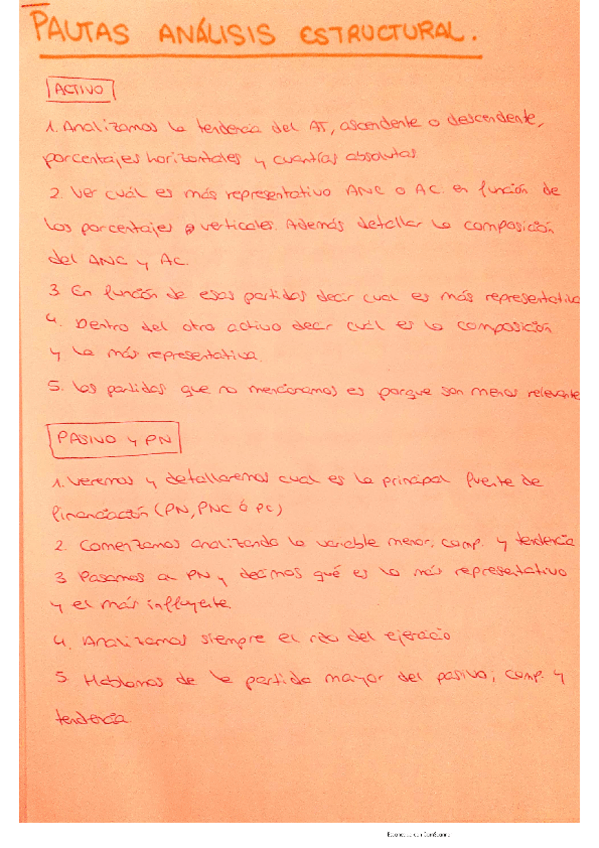 PAUTAS ANÁLISIS ESTRUCTURAL.
ACTIVO
1. Analizamos la tendencia del AT, ascendente o descendente,
porcentajes horizontales y cuantías absolutas
2. Ver cuál es más representativo ANC o AC. en función de
los porcentajes verticales. Además detallar la composición
del ANC y AC.
3 En función de esas partidas decir cual es más representativa
4. Dentro del otro activo decir cuál es la composición
y la más representativa.
5. Las partidas que no mencionamos es porque son menos relevante
PASIVO Y PN
1. Veremos y detallaremos cual es la principal fuente de
financiación (PN, PNC ó PC)
2. Comenzamos analizando la variable menor, comp. y tendencia
3 Pasamos al PN y decimos qué es lo más representativo
y el más influyente.
4. Analizamos siempre el rdo del ejercicio
5. Hablamos de la partida mayor del pasivo, comp. y
tendencia